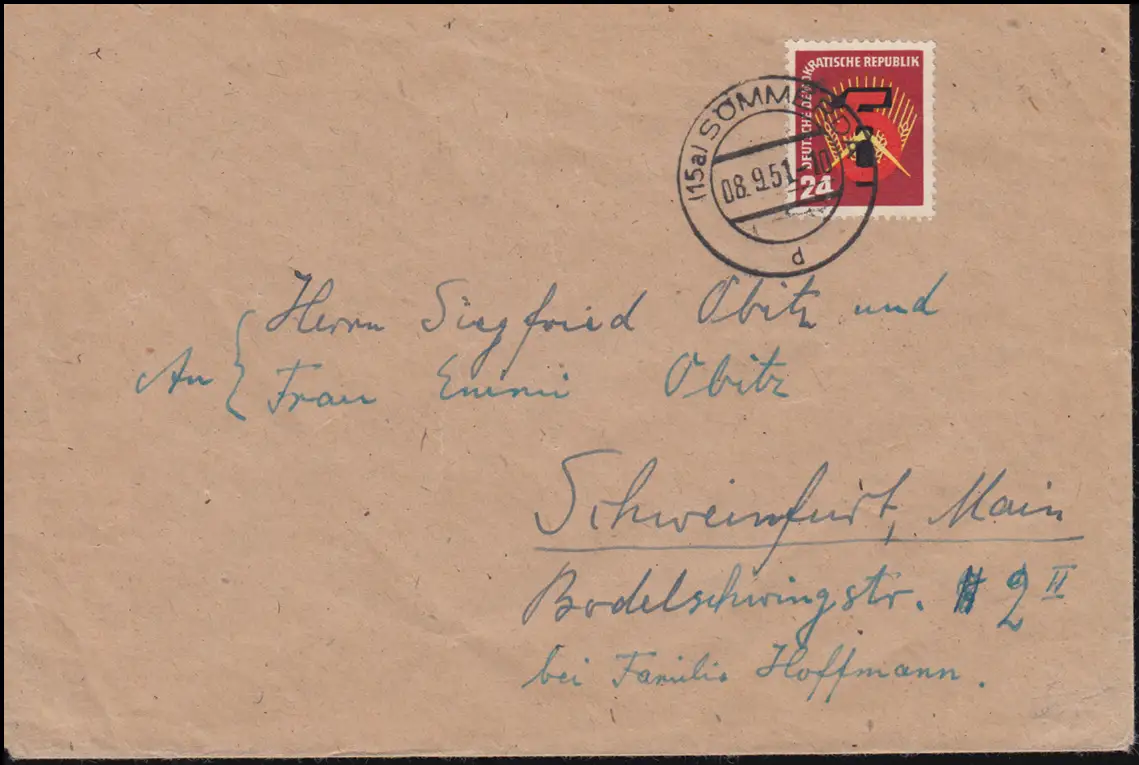 DEUTSCHE DEMOKRATISCHE REPUBLIK
24
(15a) SÖMMERDA
08.9.51.-10
d
Herrn Siegfried Obitz und
An { Frau Emmi Obitz
Schweinfurt, Main
Bodelschwingstr. 2 II
bei Familie Hoffmann.